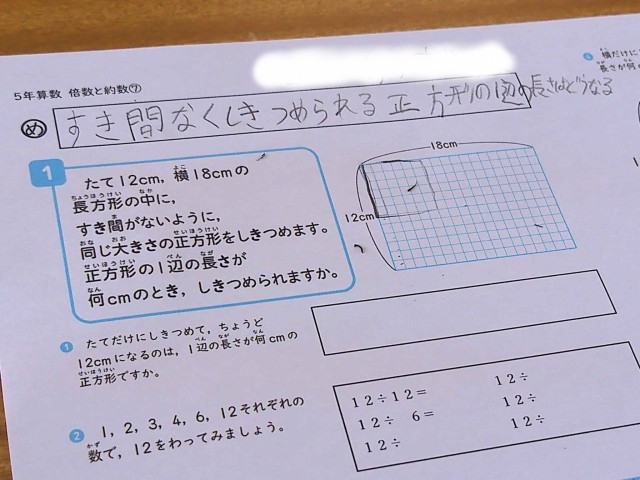 5年算数 倍数と約数⑦
め すき間なくしきつめられる正方形の1辺の長さはどうなる
1
たて12cm，横18cmの
長方形の中に，
すき間がないように，
同じ大きさの正方形をしきつめます。
正方形の1辺の長さが
何cmのとき，しきつめられますか。
18cm
12cm
1 たてだけにしきつめて，ちょうど
12cmになるのは，1辺の長さが何cmの
正方形ですか。
2 1，2，3，4，6，12それぞれの
数で，12をわってみましょう。
12÷12＝ 12÷
12÷ 6＝ 12÷
12÷ 12÷
横だけに
長さが何